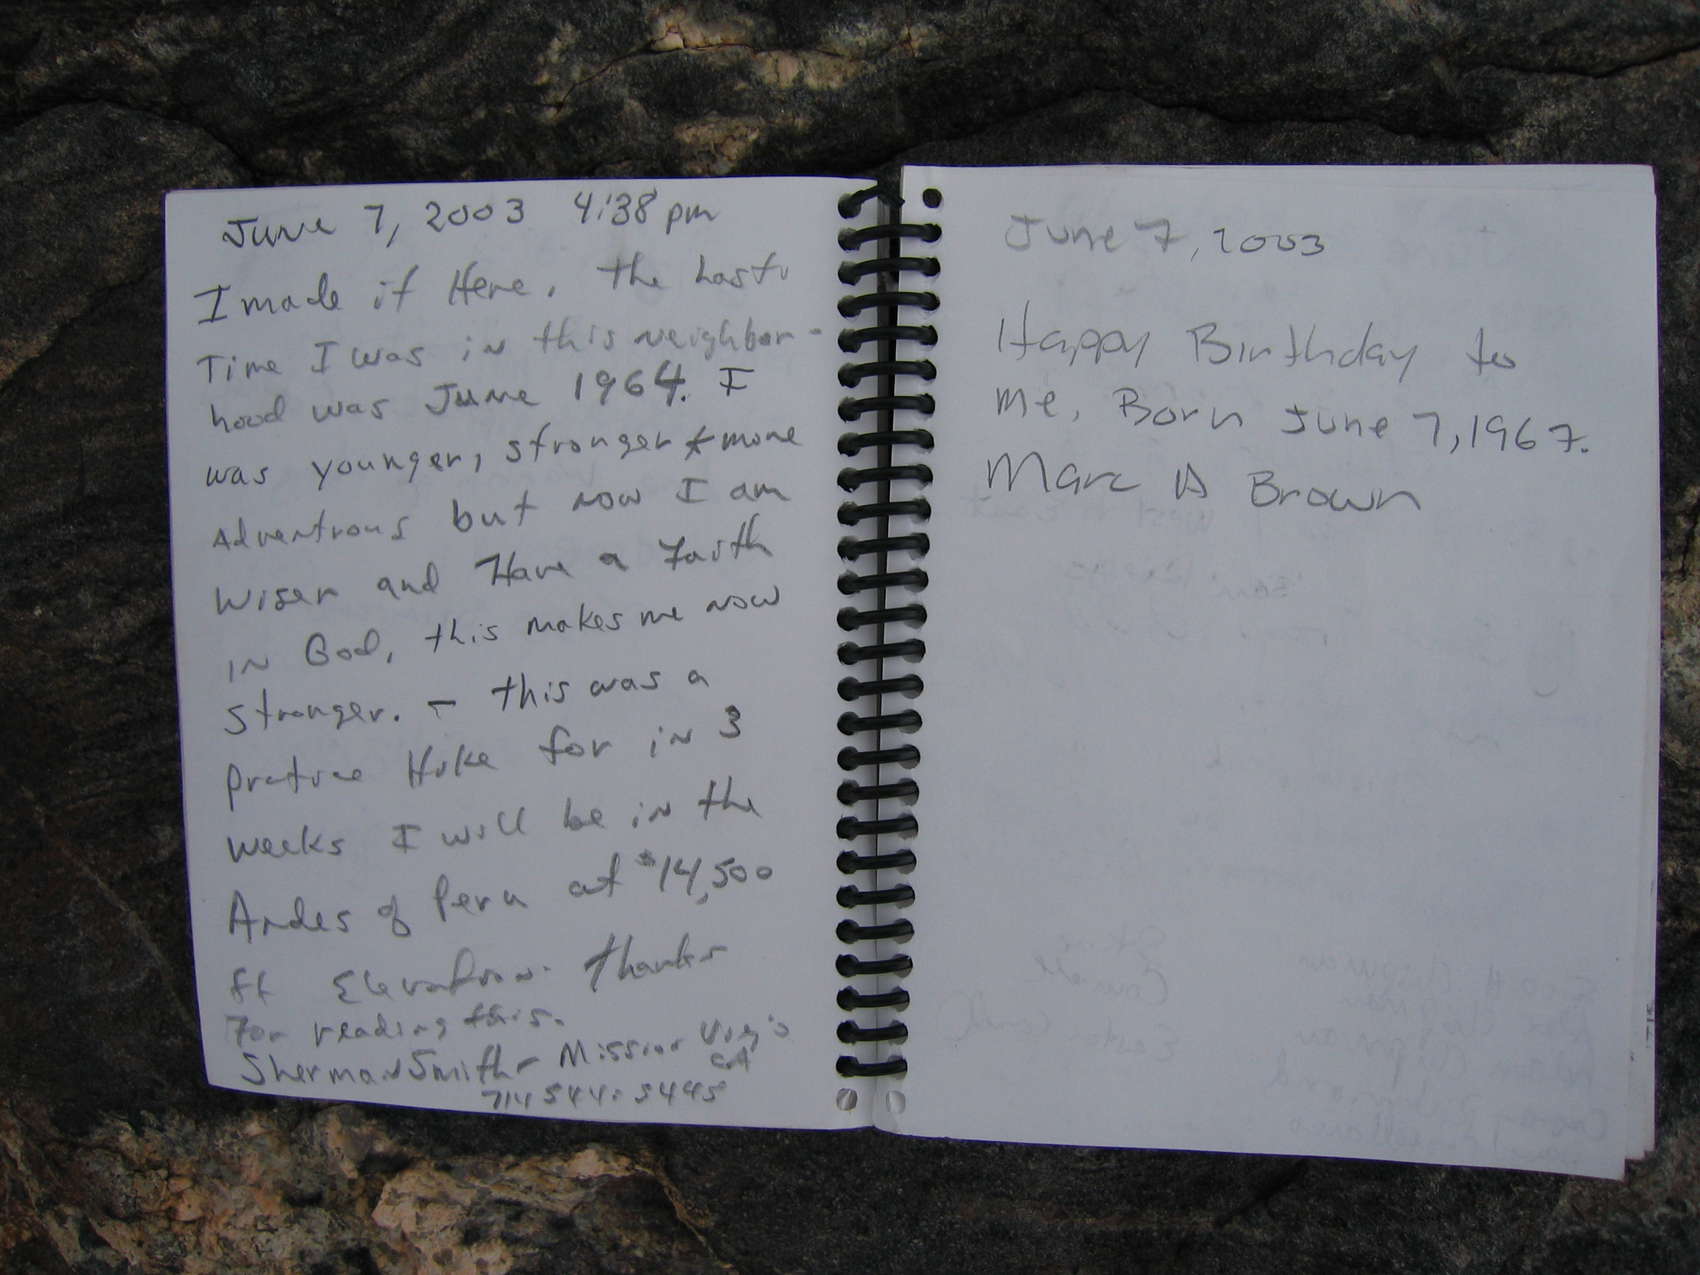 June 7, 2003 4:38 pm
I made it Here. The Last
Time I was in this neighbor-
hood was June 1964. I
was younger, stronger & more
Adventrous but now I am
Wiser and Have a Faith
in God, this makes me now
Stronger. - this was a
Pratice Hike for in 3
weeks I will be in the
Andes of Peru at 14,500
ft Elevation. Thanks
For reading this.
Sherman Smith - Mission Viejo
CA
714 544-5445
June 7, 2003
Happy Birthday to
me, Born June 7, 1967.
Marc A Brown